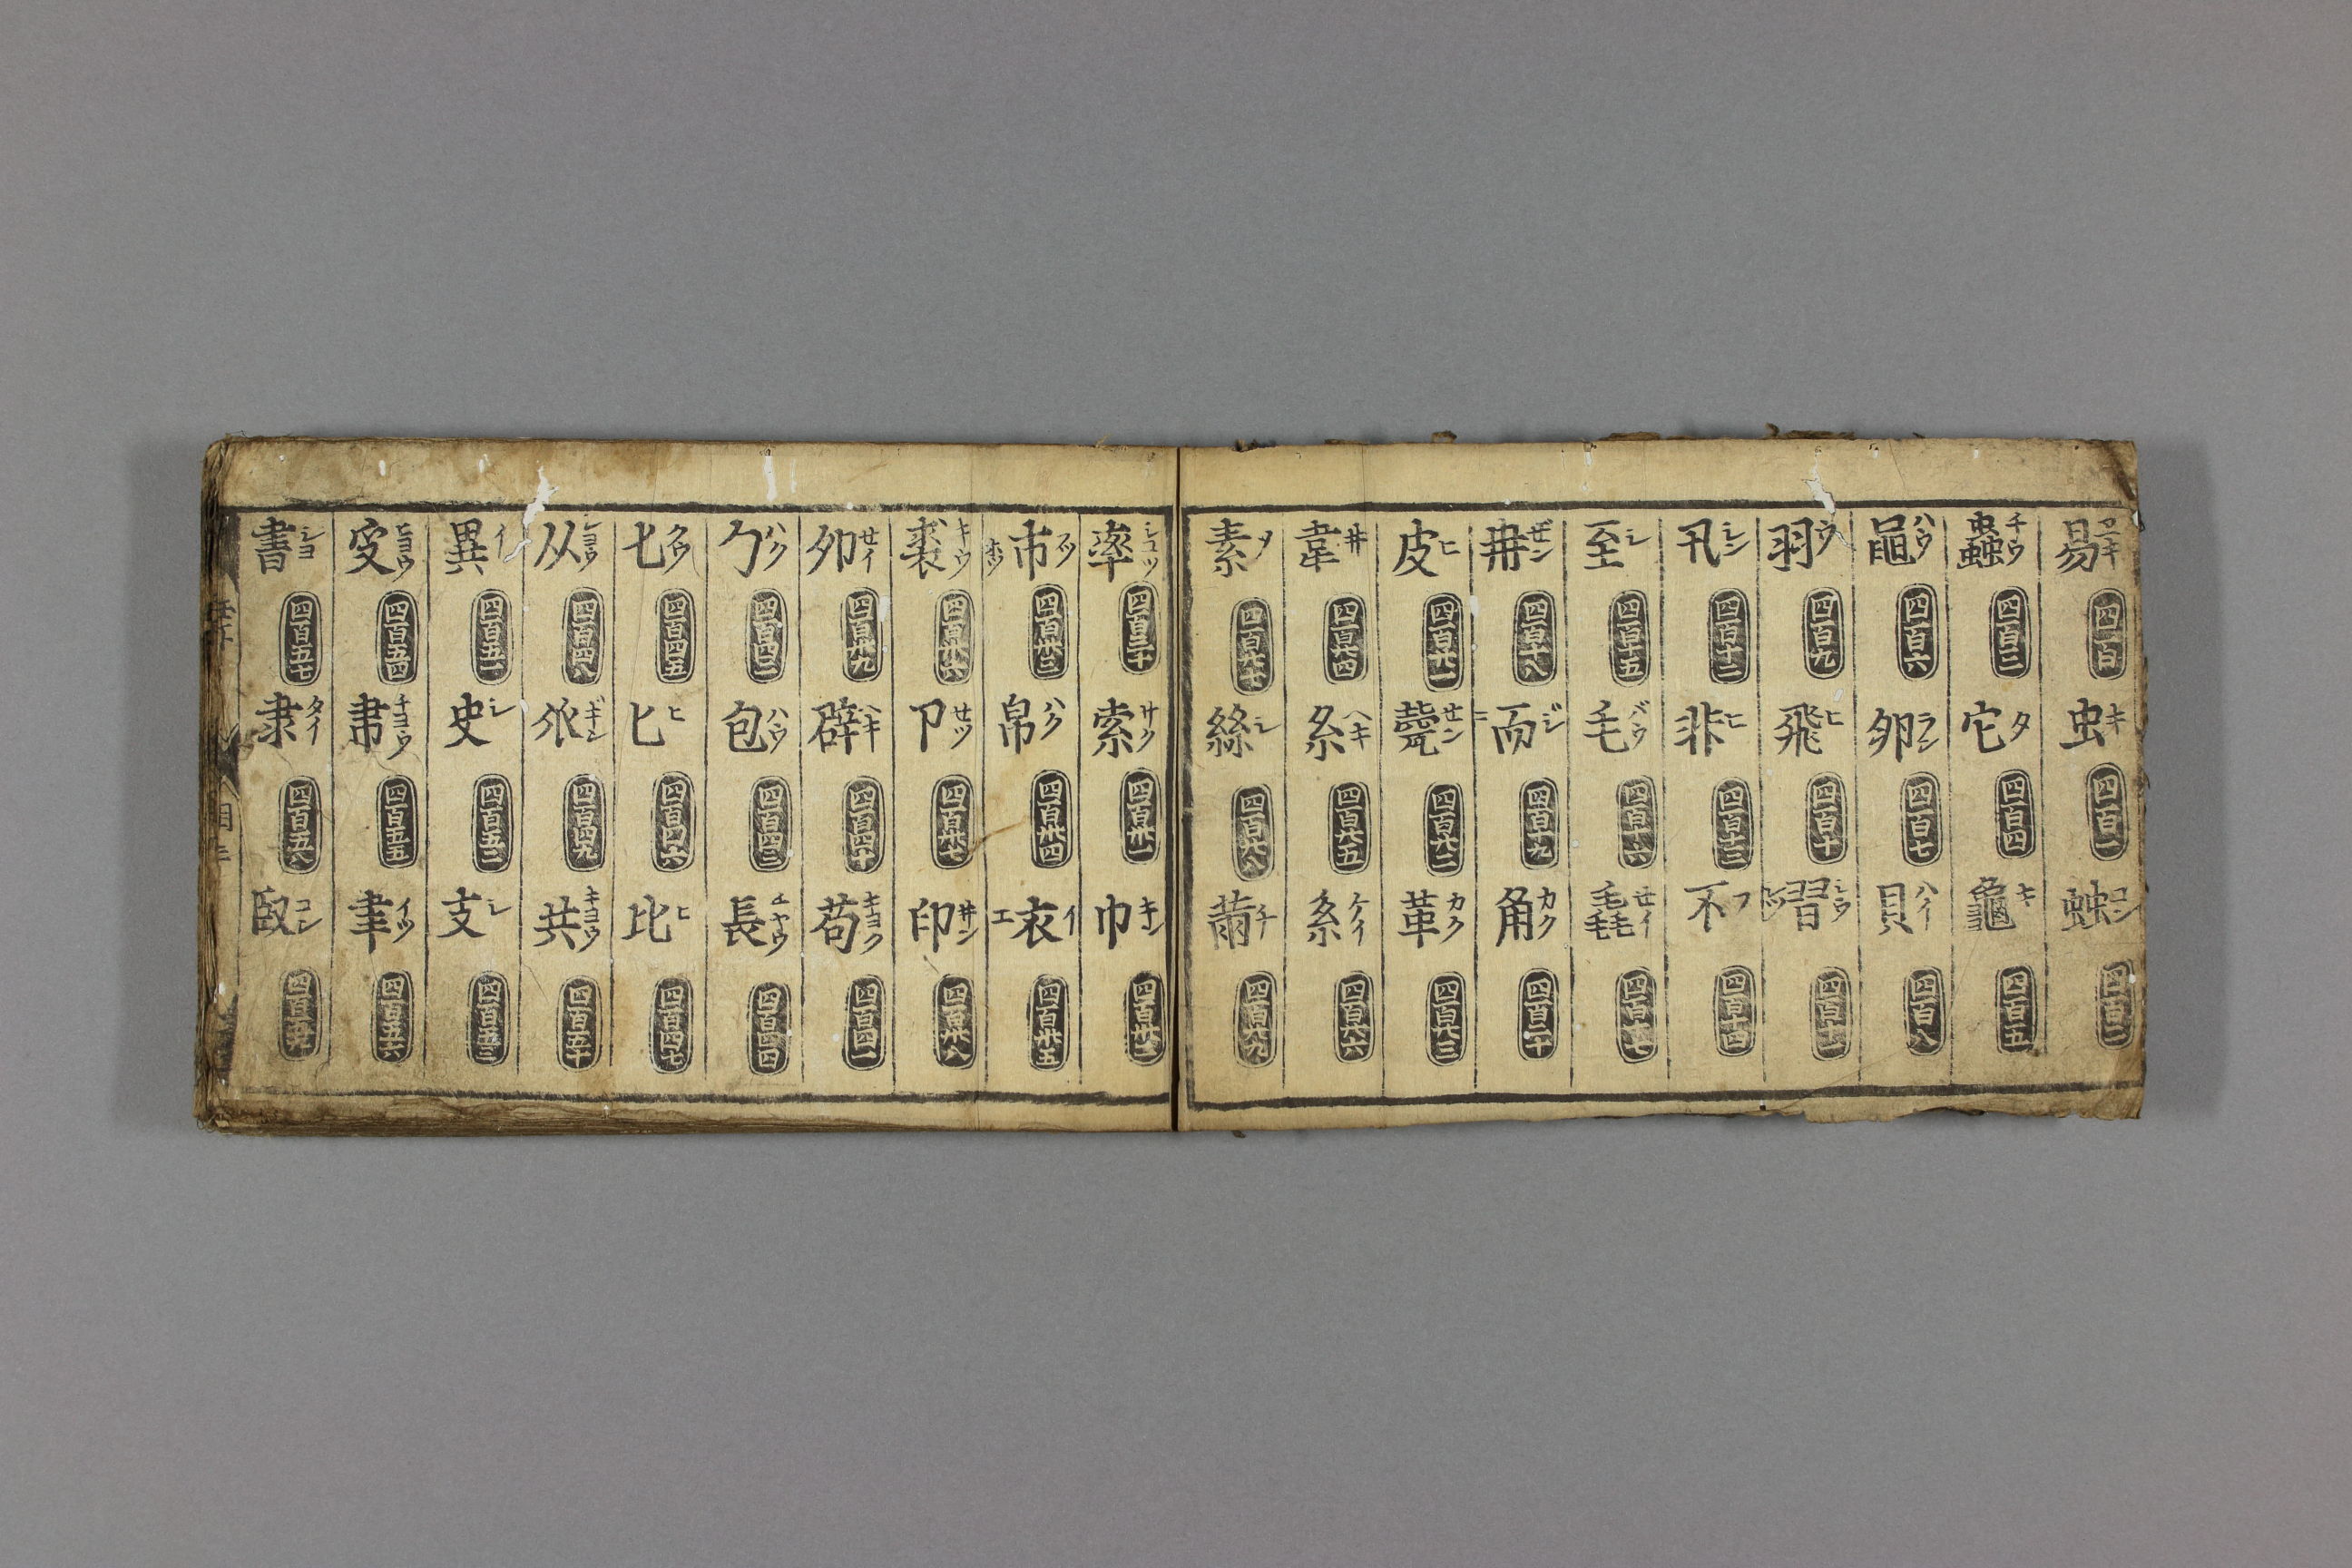 易ヱキ 四百 虫キ 四百一 䖵コン 四百二
蟲チウ 四百三 它タ 四百四 龜キ 四百五
黽ハウ 四百六 卵ラン 四百七 貝ハイ 四百八
羽ウ 四百九 飛ヒ 四百十 習シウ 四百十一
卂シン 四百十二 非ヒ 四百十三 不フ 四百十四
至シ 四百十五 毛バウ 四百十六 毳セイ 四百十七
冄ゼン 四百十八 而ジニ 四百十九 角カク 四百二十
皮ヒ 四百廿一 㼱セン 四百廿二 革カク 四百廿三
韋井 四百廿四 糸ヘキ 四百廿五 系ケイ 四百廿六
素ソ 四百廿七 絲シ 四百廿八 黹チ 四百廿九
率シュツ 四百三十 索サク 四百卅一 巾キン 四百卅二
巿フツ 四百卅三 帛ハク 四百卅四 衣イエ 四百卅五
裘キウ 四百卅六 卩セツ 四百卅七 印井ン 四百卅八
夘セイ 四百卅九 辟ヘキ 四百四十 茍キヨク 四百四一
勹ハク 四百四二 包ハウ 四百四三 長チヤウ 四百四四
七クワ 四百四五 匕ヒ 四百四六 比ヒ 四百四七
从シヨウ 四百四八 㐺ギン 四百四九 共キヨウ 四百五十
異イ 四百五一 史シ 四百五二 支シ 四百五三
𠬪ヒヨウ 四百五四 チヨウ 四百五五 聿イツ 四百五六
書シヨ 四百五七 隶タイ 四百五八 臤コン